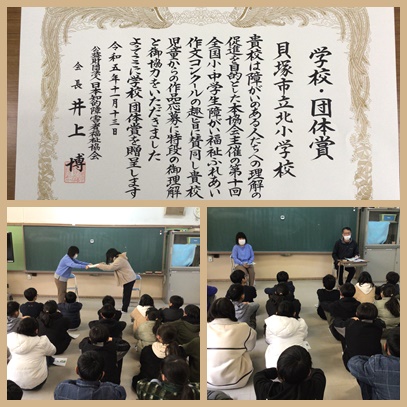 学校・団体賞
貝塚市立北小学校
貴校は障がいのある人たちへの理解の
促進を目的とした本協会主催の第十回
全国小・中学生障がい福祉ふれあい
作文コンクールの趣旨に賛同し貴校
児童からの作品応募に特段の御理解
と御協力をいただきました
よってここに学校・団体賞を贈呈します
令和五年十一月十三日
公益財団法人日本知的障害者福祉協会
会長 井上 博